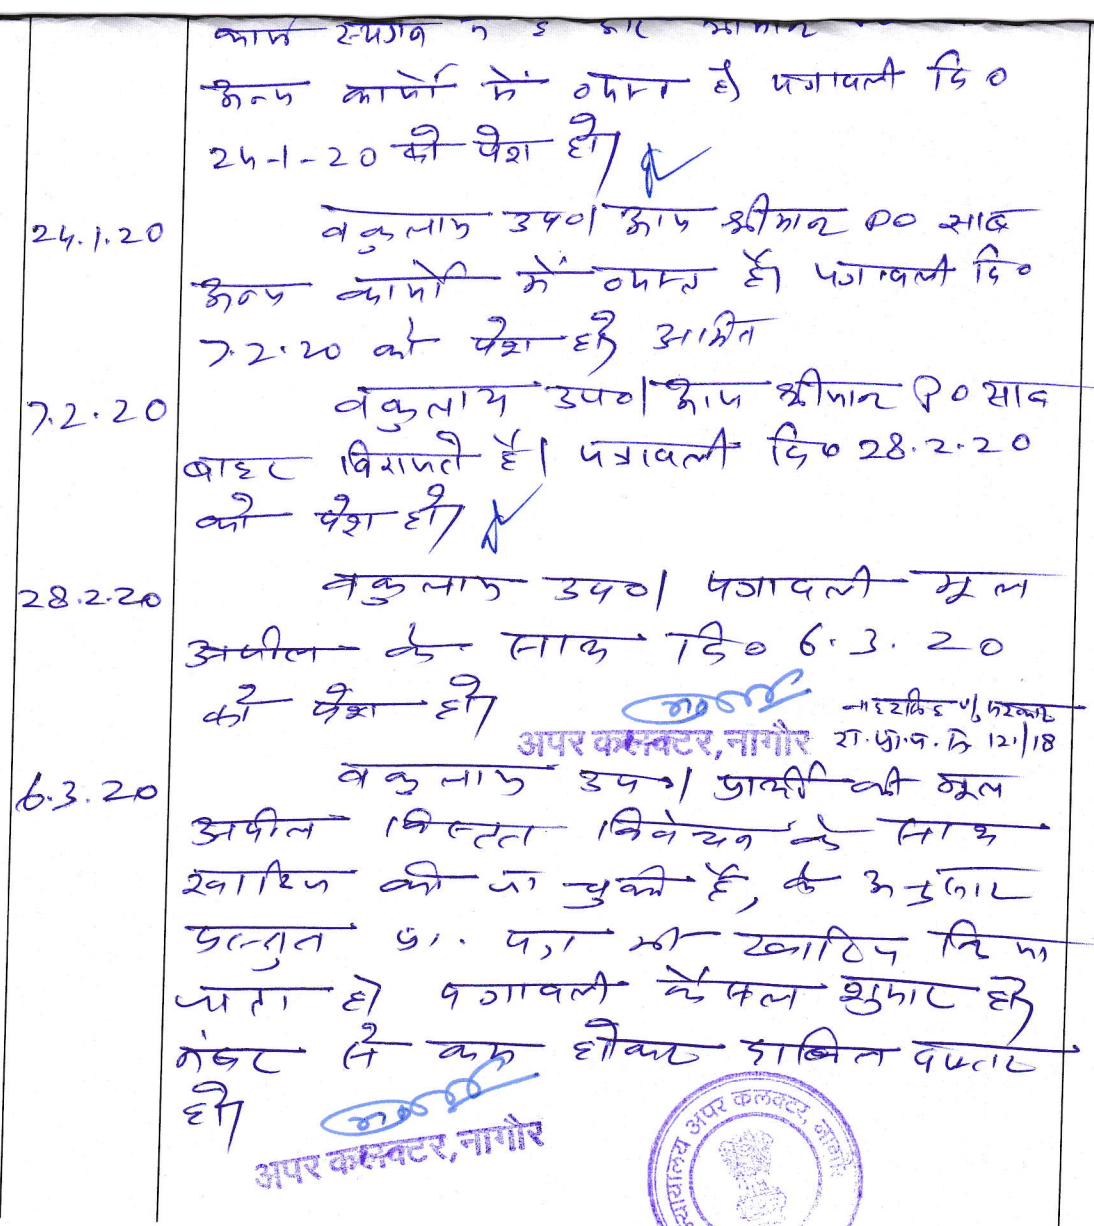 कार्य स्थगन
अन्य कार्यो में व्यस्त है। पत्रावली दि०
24-1-20 को पेश हो।
24.1.20
वकुलाय उप०। आज श्रीमान PO साब
अन्य कार्यो में व्यस्त है। पत्रावली दि०
7.2.20 को पेश हो।
7.2.20
वकुलाय उप०। आज श्रीमान PO साब
बाहर बिराजते है। पत्रावली दि० 28.2.20
को पेश हो।
28.2.20
वकुलाय उप०। पत्रावली मूल
अपील के साथ दि० 6.3.20
को पेश हो।
अपर कलक्टर, नागौर
121/18
6.3.20
वकुलाय उप०। प्रार्थी की मूल
अपील विस्तृत विवेचन के साथ
खारिज की जा चुकी है, के अनुसार
प्रस्तुत प्रा. पत्र भी खारिज किया
जाता है। पत्रावली फैसल शुमार हो।
नंबर से कम होकर दाखिल दफ्तर
हो।
अपर कलक्टर, नागौर
न्यायालय अपर कलक्टर, नागौर